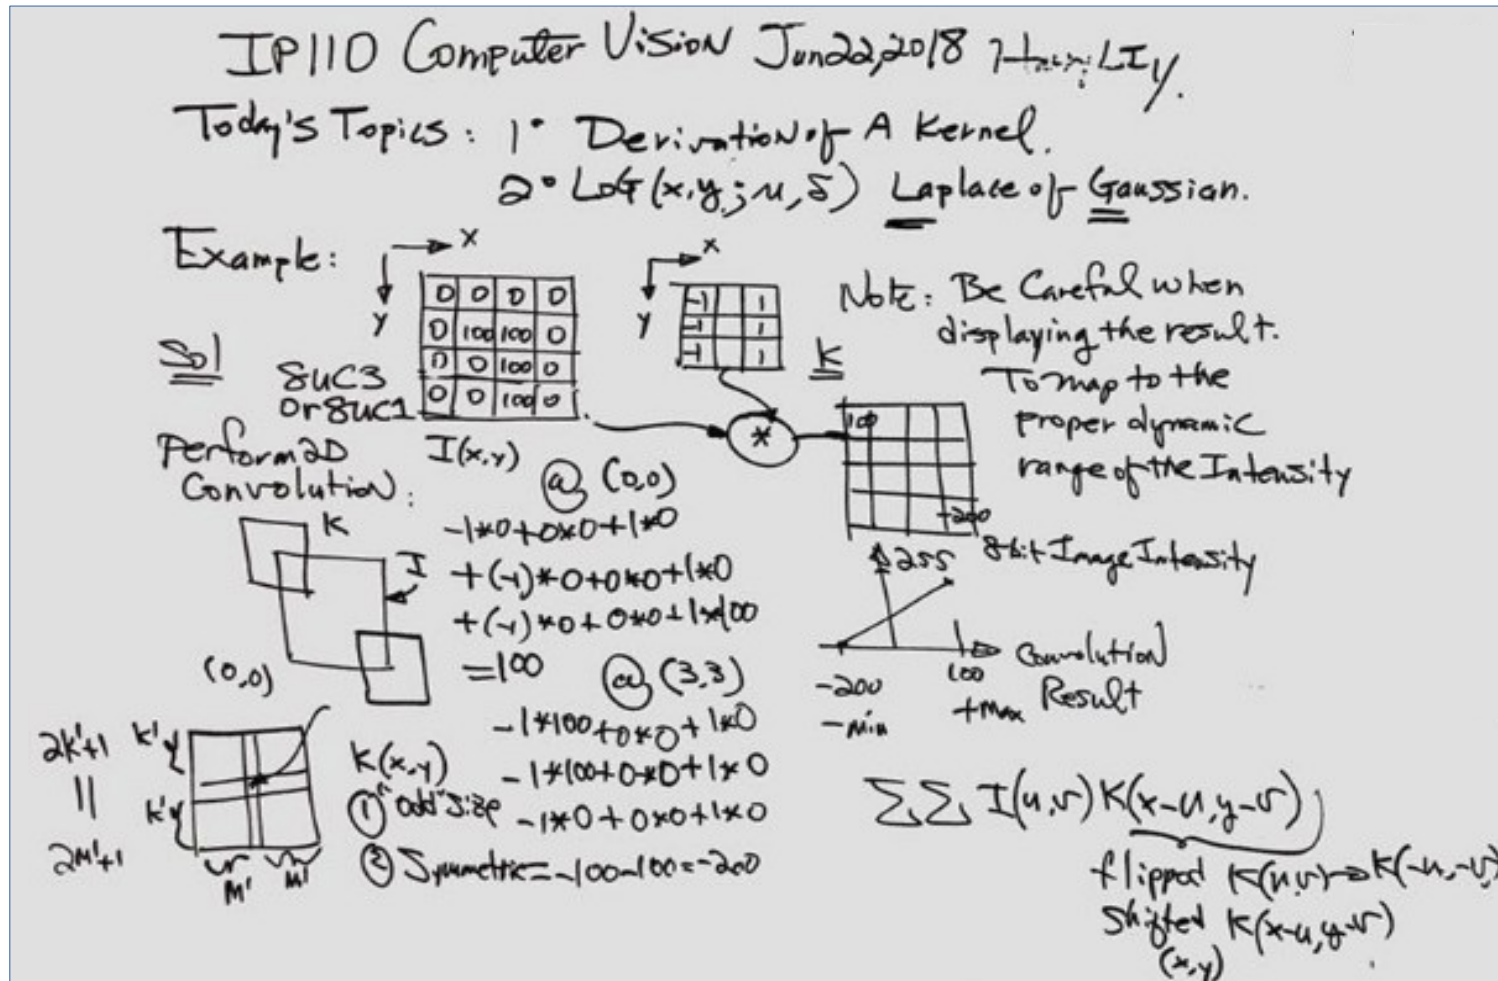 IP110 Computer Vision Jun22,2018 LI,
Today's Topics: 1° Derivation of A Kernel.
2° LoG(x,y;u,δ) Laplace of Gaussian.
Example:
x
y
0 0 0 0
0 100 100 0
0 0 100 0
0 0 100 0
I(x,y)
x
y
-1 1
-1 1
-1 1
K
*
100
-200
Note: Be Careful when
displaying the result.
To map to the
proper dynamic
range of the Intensity
Sol
8UC3
or 8UC1
Perform 2D
Convolution:
K
I
(0,0)
@ (0,0)
-1*0+0*0+1*0
+(-1)*0+0*0+1*0
+(-1)*0+0*0+1*100
=100
@ (3,3)
-1*100+0*0+1*0
-1*100+0*0+1*0
-1*0+0*0+1*0
=-100-100=-200
255 8-bit Image Intensity
-200
-min
100
+max
Convolution
Result
2k'+1
||
2M'+1
k'
k'
M' M'
K(x,y)
① "odd" size
② Symmetric
ΣΣ I(u,v) K(x-u,y-v)
flipped K(u,v)→K(-u,-v)
Shifted K(x-u,y-v)
(x,y)